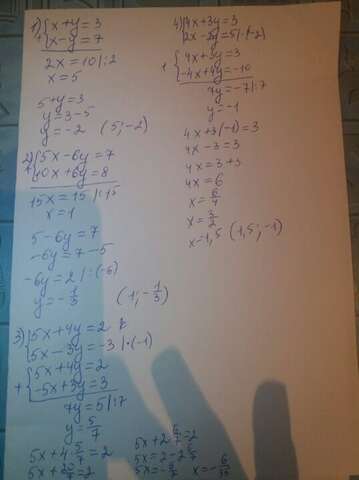 1) { x+y=3
+ { x-y=7
2x=10 |:2
x=5
5+y=3
y=3-5
y=-2 (5;-2)
2) { 5x-6y=7
+ { 10x+6y=8
15x=15 |:15
x=1
5-6y=7
-6y=7-5
-6y=2 |:(-6)
y=-1/3 (1;-1/3)
3) { 5x+4y=2
{ 5x-3y=-3 |·(-1)
+ { 5x+4y=2
{ -5x+3y=3
7y=5 |:7
y=5/7
5x+4·5/7=2
5x+20/7=2
5x+2 6/7=2
5x=2-2 6/7
5x=-6/7 x=-6/35
4) { 4x+3y=3
{ 2x-2y=5 |·(-2)
+ { 4x+3y=3
{ -4x+4y=-10
7y=-7 |:7
y=-1
4x+3(-1)=3
4x-3=3
4x=3+3
4x=6
x=6/4
x=3/2
x=1,5 (1,5;-1)